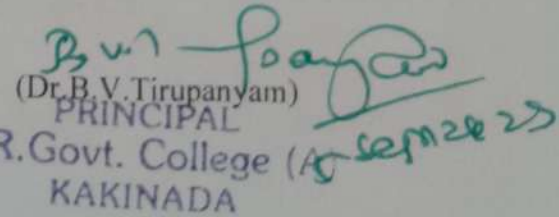 (Dr.B.V.Tirupanyam)
PRINCIPAL
R.Govt. College (A
KAKINADA